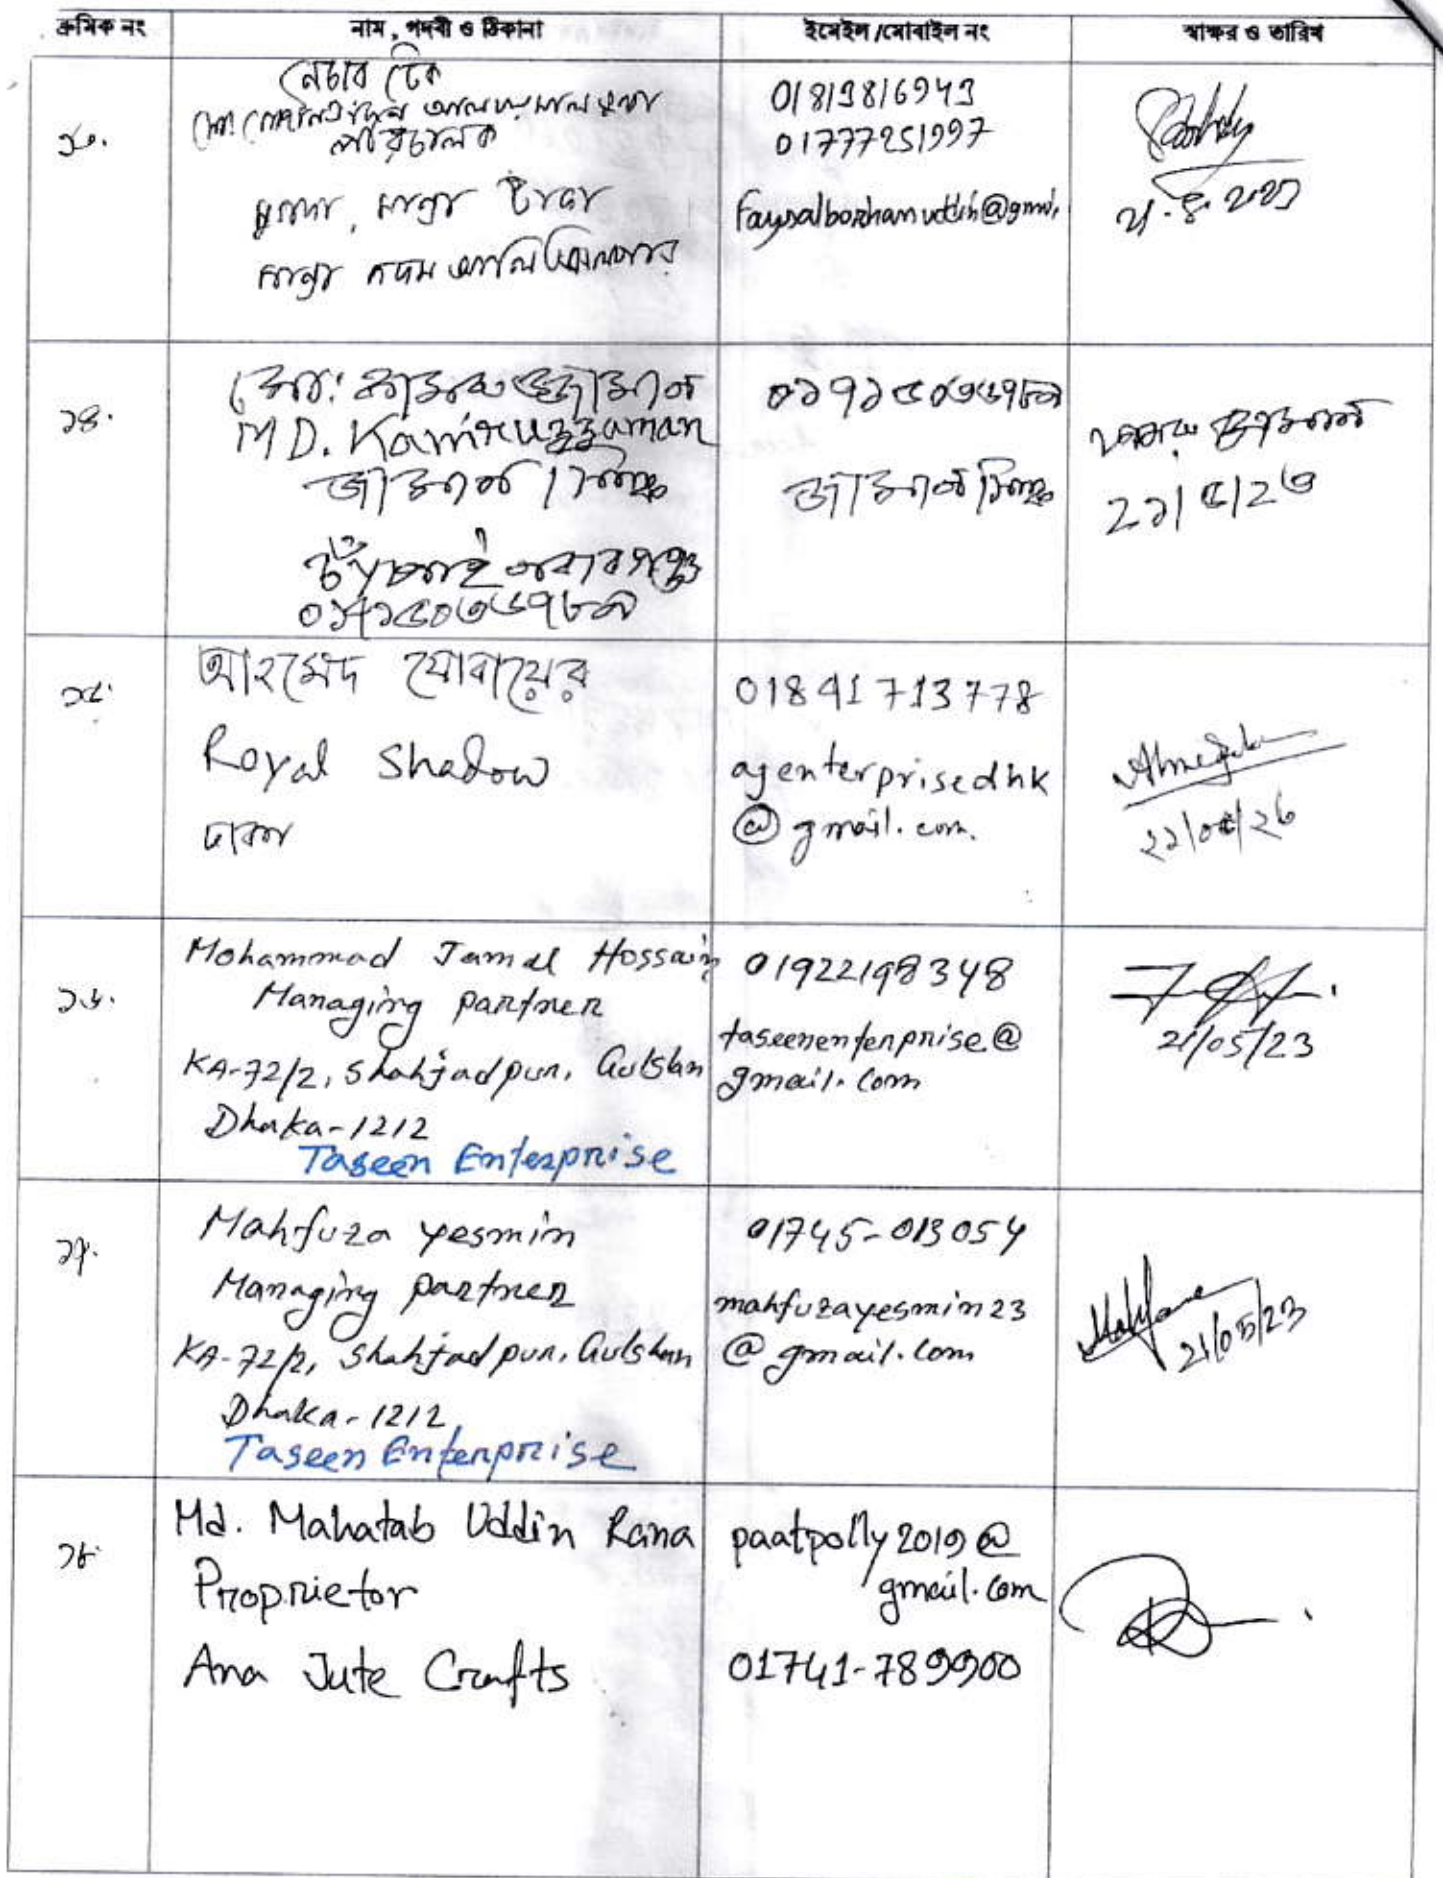 ক্রমিক নং নাম, পদবী ও ঠিকানা ইমেইল/মোবাইল নং স্বাক্ষর ও তারিখ
১৩.
নেচার টেক
পরিচালক
01819816949
01777251997
১৪.
মো: কামরুজ্জামান
MD. Kamruzzaman
জামান সিল্ক
চাঁপাই নবাবগঞ্জ
জামান সিল্ক
২১/৫/২৩
১৫.
আহমেদ যোবায়ের
Royal Shadow
ঢাকা
01841713778
ajenterprisedhk
@gmail.com.
১৬.
Mohammad Jamal Hossain
Managing partner
KA-72/2, Shahjadpur, Gulshan
Dhaka-1212
Taseen Enterprise
01922198348
taseenenterprise@
gmail.com
21/05/23
১৭.
Mahfuza yesmin
Managing partner
KA-72/2, Shahjadpur, Gulshan
Dhaka-1212
Taseen Enterprise
01745-013054
mahfuzayesmin23
@gmail.com
21/05/23
১৮
Md. Mahatab Uddin Rana
Proprietor
Ana Jute Crafts
paatpolly2019@
gmail.com
01741-789900